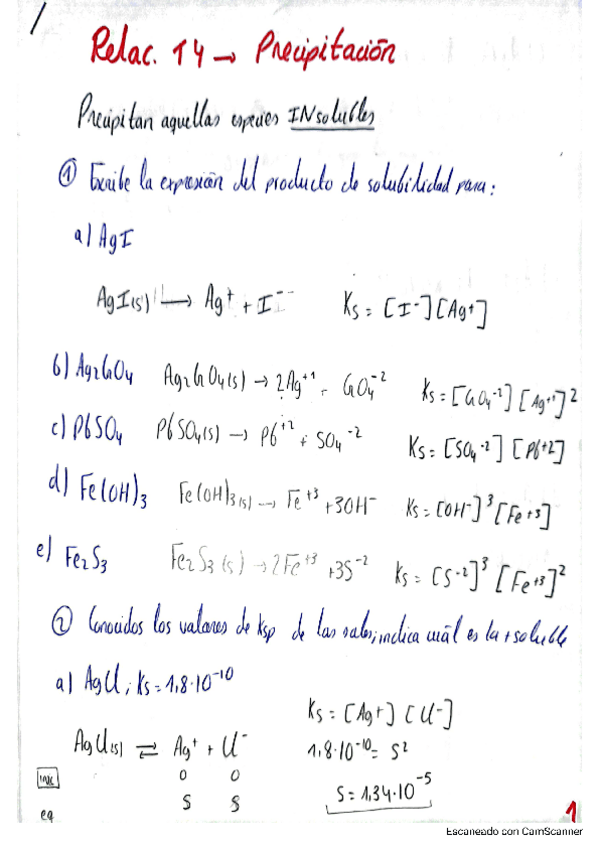 Relac. T4 → Precipitación
Precipitan aquellas especies INsolubles
① Escribe la expresión del producto de solubilidad para:
a) AgI
AgI(s) → Ag⁺ + I⁻ Ks = [I⁻][Ag⁺]
b) Ag₂CrO₄ Ag₂CrO₄(s) → 2Ag⁺¹ + CrO₄⁻² Ks = [CrO₄⁻²][Ag⁺¹]²
c) PbSO₄ PbSO₄(s) → Pb⁺² + SO₄⁻² Ks = [SO₄⁻²][Pb+2]
d) Fe(OH)₃ Fe(OH)₃(s) → Fe⁺³ + 3OH⁻ Ks = [OH⁻]³[Fe⁺³]
e) Fe₂S₃ Fe₂S₃(s) → 2Fe⁺³ + 3S⁻² Ks = [S⁻²]³[Fe⁺³]²
② Conocidos los valores de Ksp de las sales, indica cuál es la + soluble
a) AgCl; Ks = 1,8·10⁻¹⁰
Ks = [Ag⁺][Cl⁻]
AgCl(s) ⇌ Ag⁺ + Cl⁻ 1,8·10⁻¹⁰ = S²
0 0
eq S S S = 1,34·10⁻⁵
1
Escaneado con CamScanner